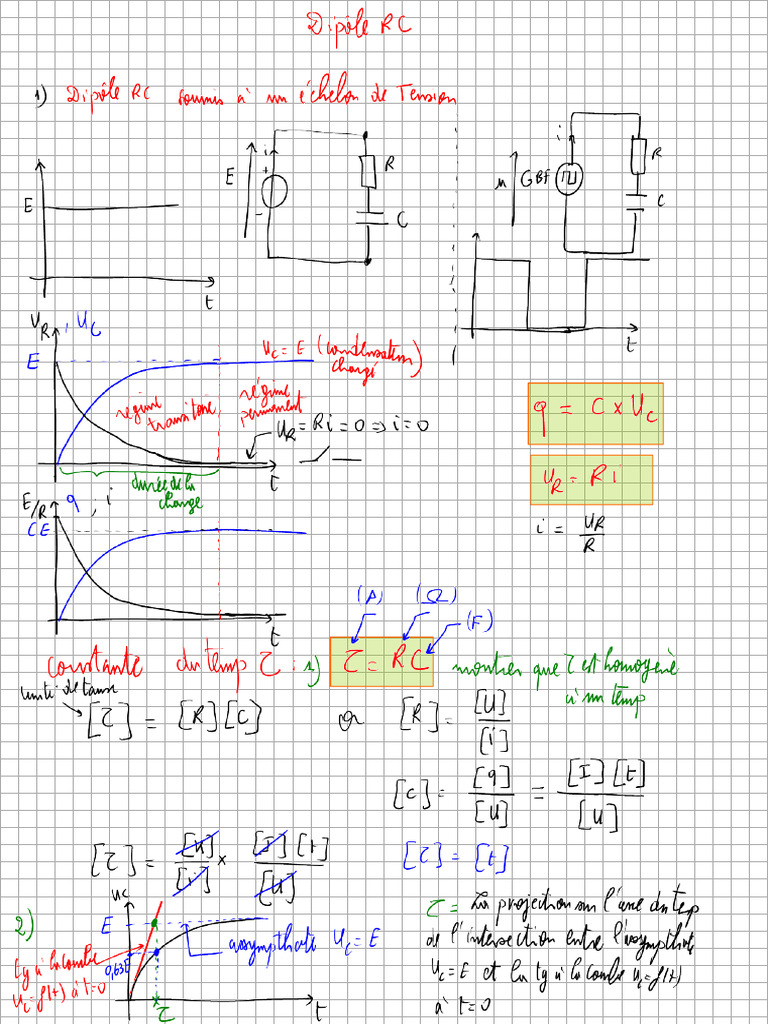 Dipôle RC
1) Dipôle RC soumis à un échelon de Tension
E
t
E
i
+
-
R
C
u
GBf
i
R
C
t
U_R, U_C
E
U_C = E (condensateur chargé)
régime transitoire
régime permanent
U_R = Ri = 0 ⇒ i = 0
t
durée de la charge
q = C × U_C
U_R = R i
i = U_R / R
E/R
q, i
CE
t
(A)
(Ω)
(F)
constante du temp τ : 1)
τ = RC
montrer que τ est homogène
à un temp
[τ] = [R][C]
or [R] = [U] / [i]
[C] = [q] / [U] = [I][t] / [U]
[τ] = [U] / [i] × [I][t] / [U]
[τ] = [t]
2)
uc
E
0,63E
tg à la courbe
U_C = f(t) à t=0
assympthote U_C = E
τ
t
τ = La projection sur l'axe du temp
de l'intersection entre l'assympthote
U_C = E et la tg à la courbe U_C = f(t)
à t=0